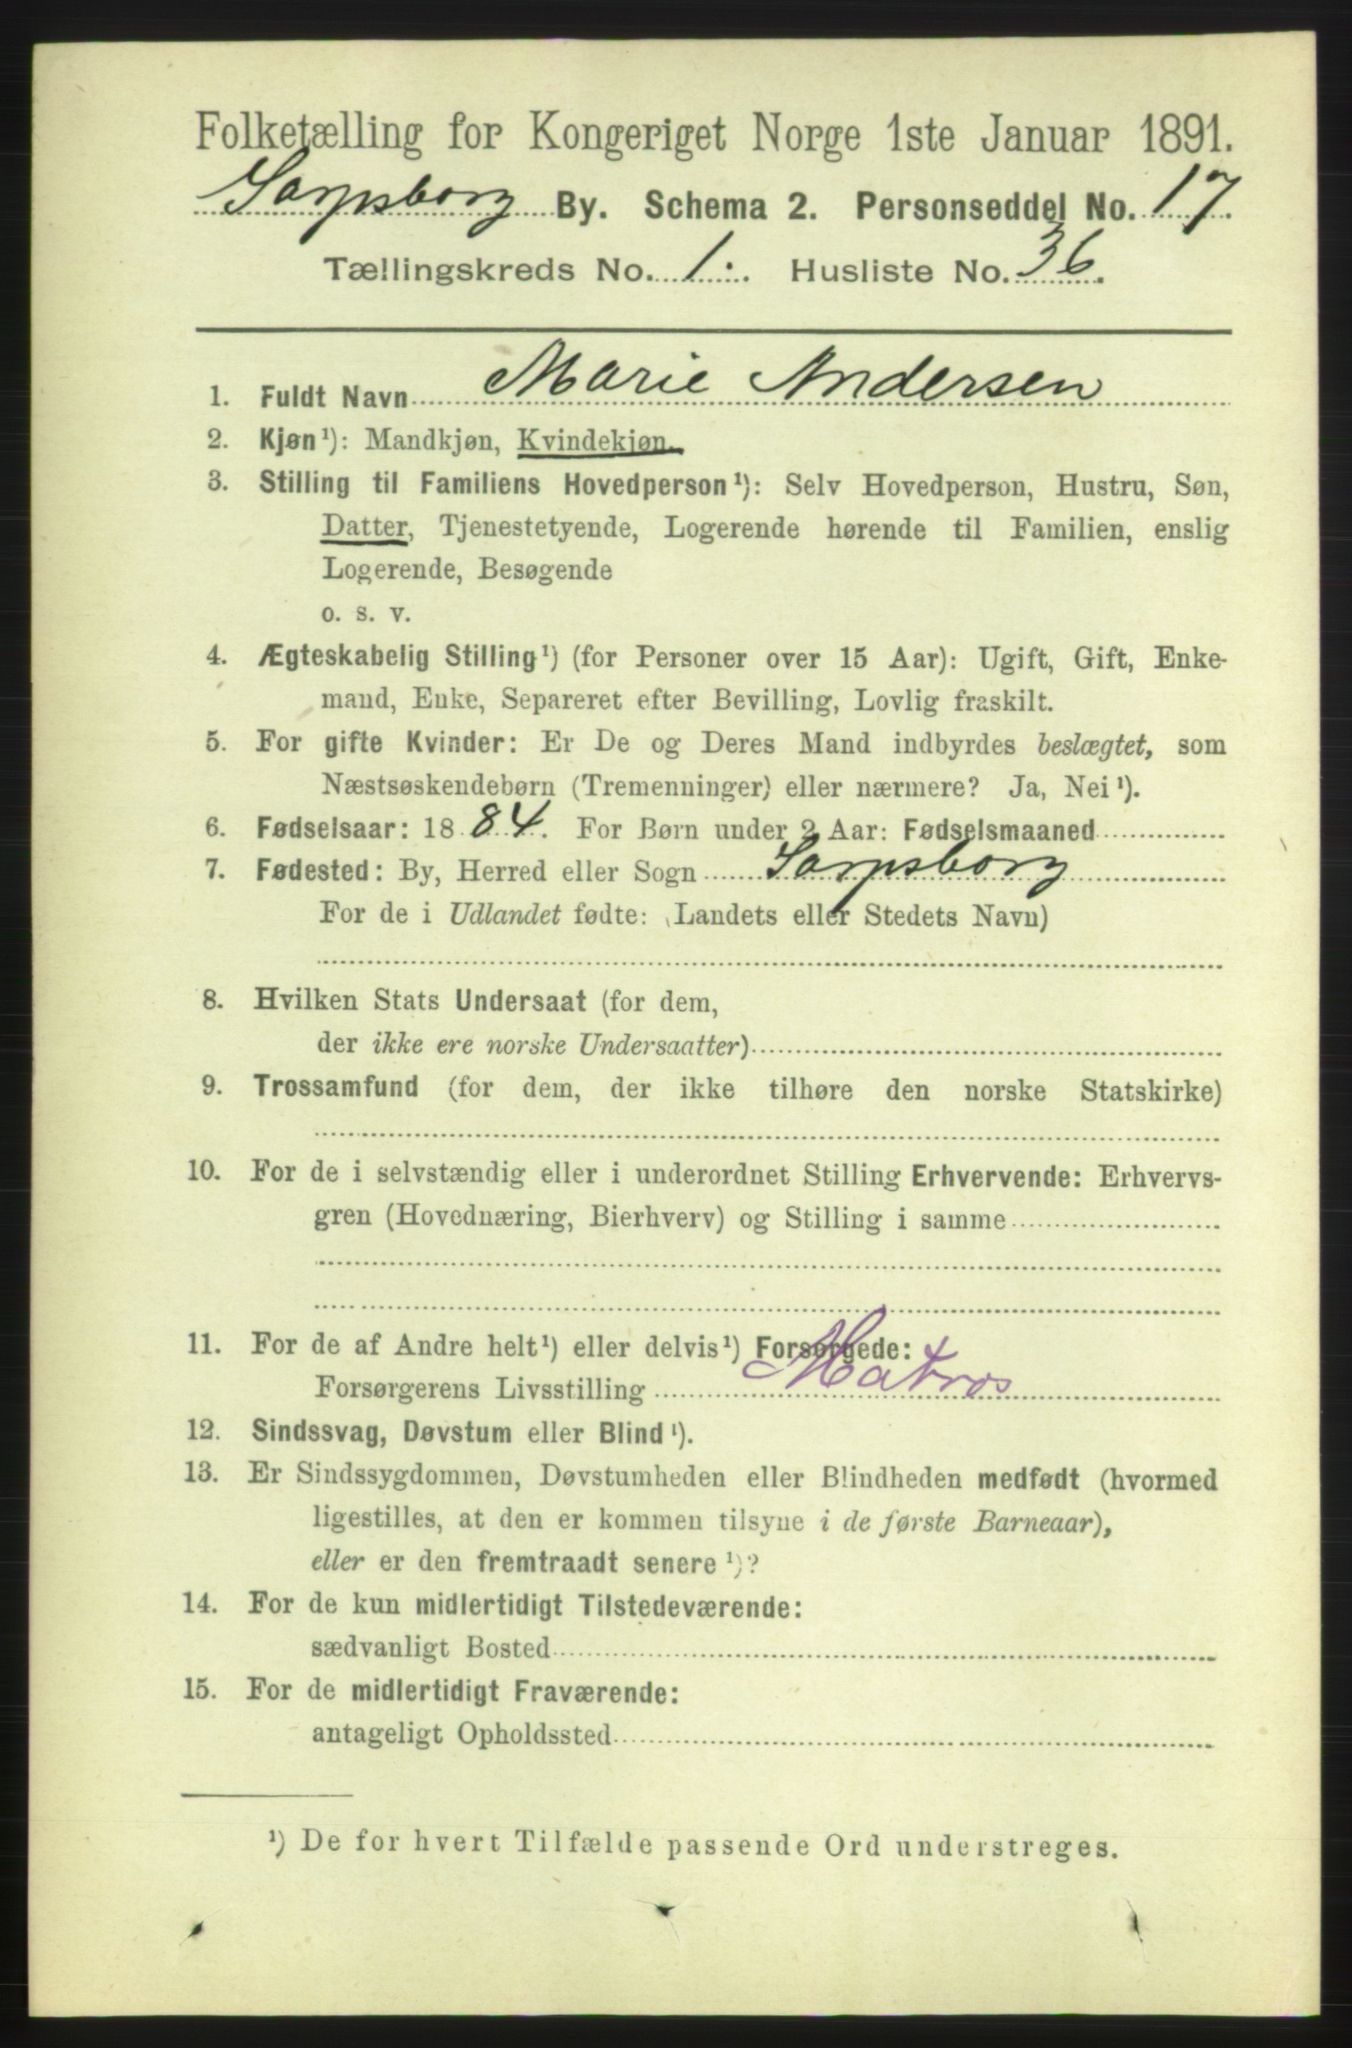 Folketælling for Kongeriget Norge 1ste Januar 1891.
Sarpsborg By. Schema 2. Personseddel No. 17.
Tællingskreds No. 1. Husliste No. 36.
1. Fuldt Navn Marie Andersen
2. Kjøn¹): Mandkjøn, Kvindekjøn.
3. Stilling til Familiens Hovedperson¹): Selv Hovedperson, Hustru, Søn,
Datter, Tjenestetyende, Logerende hørende til Familien, enslig
Logerende, Besøgende
o. s. v.
4. Ægteskabelig Stilling¹) (for Personer over 15 Aar): Ugift, Gift, Enke-
mand, Enke, Separeret efter Bevilling, Lovlig fraskilt.
5. For gifte Kvinder: Er De og Deres Mand indbyrdes beslægtet, som
Næstsøskendebørn (Tremenninger) eller nærmere? Ja, Nei¹).
6. Fødselsaar: 1884. For Børn under 2 Aar: Fødselsmaaned
7. Fødested: By, Herred eller Sogn Sarpsborg
For de i Udlandet fødte: (Landets eller Stedets Navn)
8. Hvilken Stats Undersaat (for dem,
der ikke ere norske Undersaatter)
9. Trossamfund (for dem, der ikke tilhøre den norske Statskirke)
10. For de i selvstændig eller i underordnet Stilling Erhvervende: Erhvervs-
gren (Hovednæring, Bierhverv) og Stilling i samme
11. For de af Andre helt¹) eller delvis¹) Forsørgede:
Forsørgerens Livsstilling Matros
12. Sindssvag, Døvstum eller Blind¹).
13. Er Sindssygdommen, Døvstumheden eller Blindheden medfødt (hvormed
ligestilles, at den er kommen tilsyne i de første Barneaar),
eller er den fremtraadt senere¹)?
14. For de kun midlertidigt Tilstedeværende:
sædvanligt Bosted
15. For de midlertidigt Fraværende:
antageligt Opholdssted
¹) De for hvert Tilfælde passende Ord understreges.